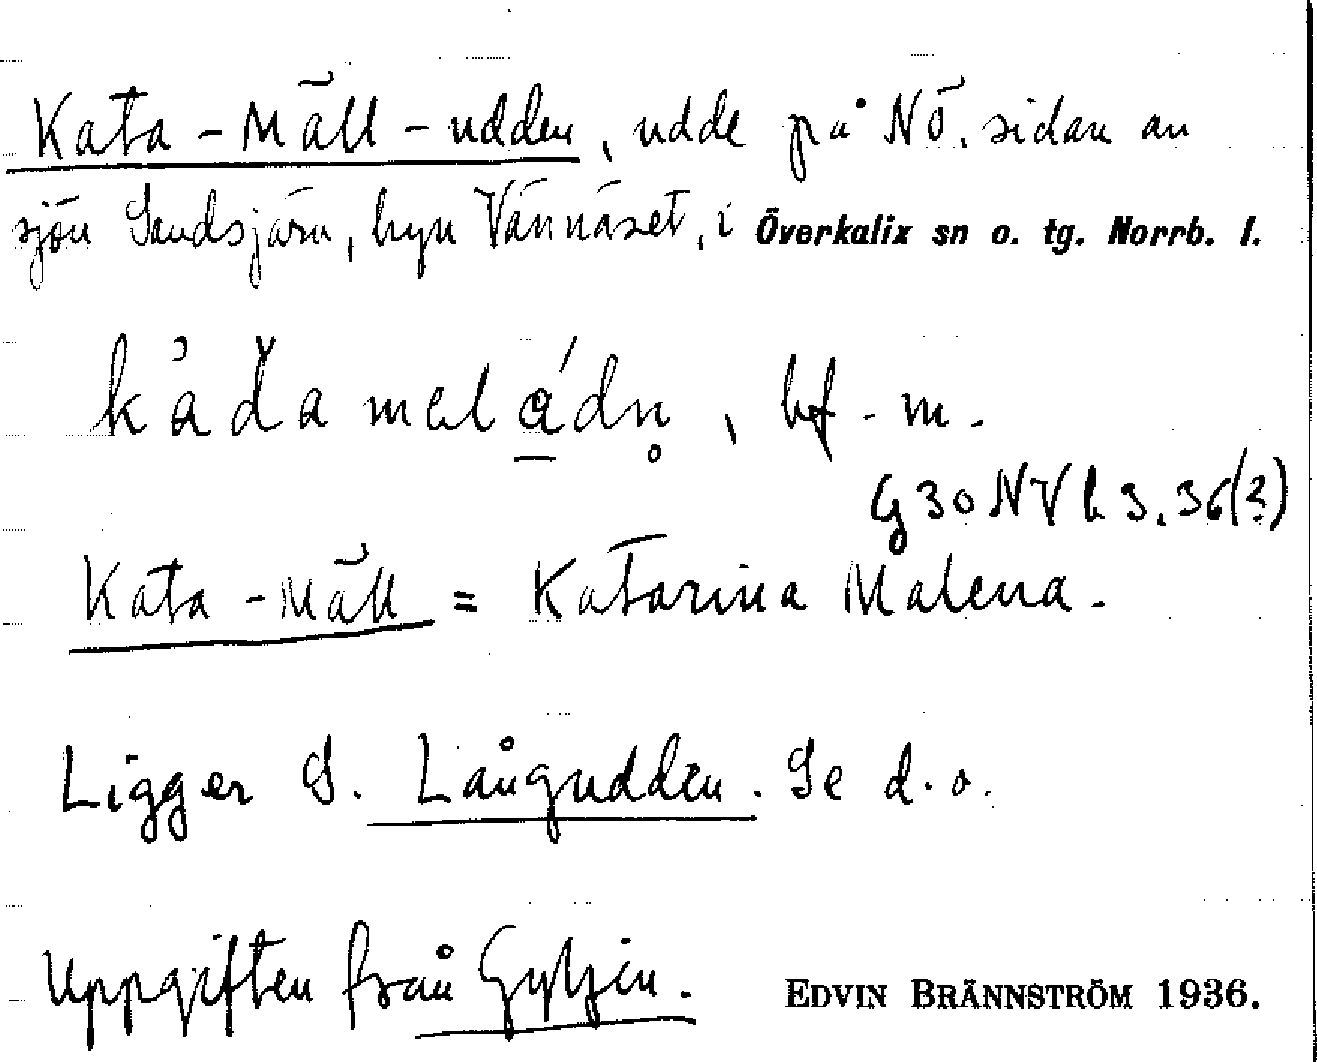 Kata-Mäll-udden, udde på NÖ. sidan av
sjön Sandsjärv, byn Vännäset, i Överkalix sn o. tg. Norrb. l.
bf. m.
G30NV
Kata-Mäll = Katarina Malena.
Ligger S. Långudden. Se d. o.
Uppgiften från Gyljen. EDVIN BRÄNNSTRÖM 1936.